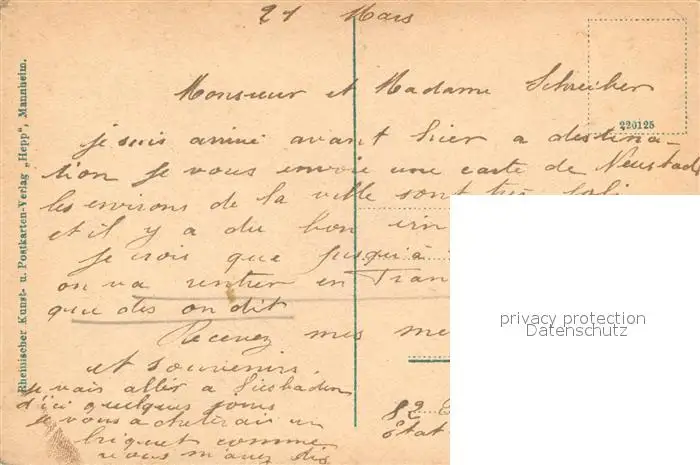 21 Mars
Monsieur et Madame Schreiber
je suis arrivé avant hier a destina-
tion je vous envoie une carte de Neustadt
les environs de la ville sont très joli
et il y a du bon
je crois que jusqu'à
on va rentrer en Fran
que des on dit
Recevez mes me
et souvenirs
je vais aller a Wiesbaden
d'ici quelques jours
je vous achèterais un
briquet comme
vous m'avez dis
82
Etat
220125
Rheinischer Kunst- u. Postkarten-Verlag „Hepp", Mannheim.
privacy protection
Datenschutz